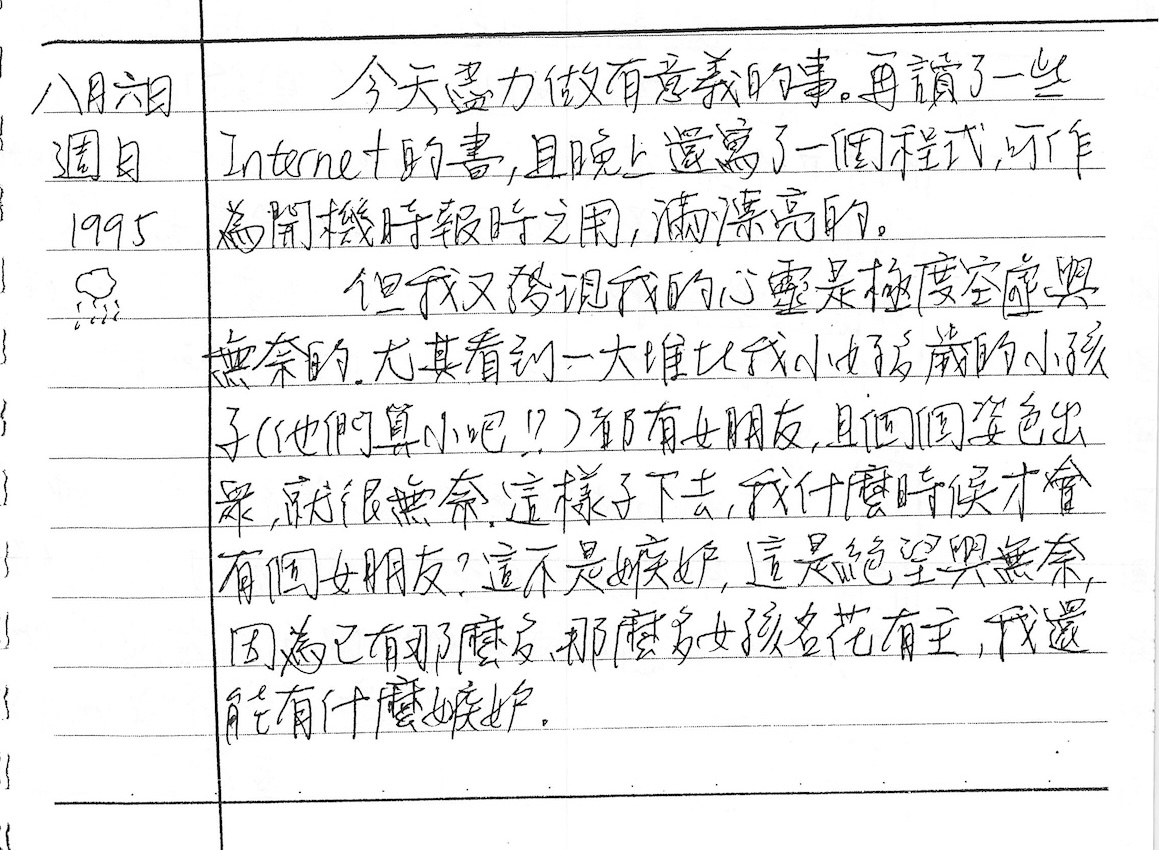 八月六日
週日
1995
今天盡力做有意義的事。再讀了一些
Internet的書,且晚上還寫了一個程式,可作
為開機時報時之用,滿漂亮的。
但我又發現我的心靈是極度空虛與
無奈的.尤其看到一大堆比我小好多歲的小孩
子(他們算小吧!?)都有女朋友,且個個姿色出
眾,就很無奈.這樣子下去,我什麼時候才會
有個女朋友?這不是嫉妒,這是絕望與無奈,
因為已有那麼多、那麼多女孩名花有主,我還
能有什麼嫉妒.